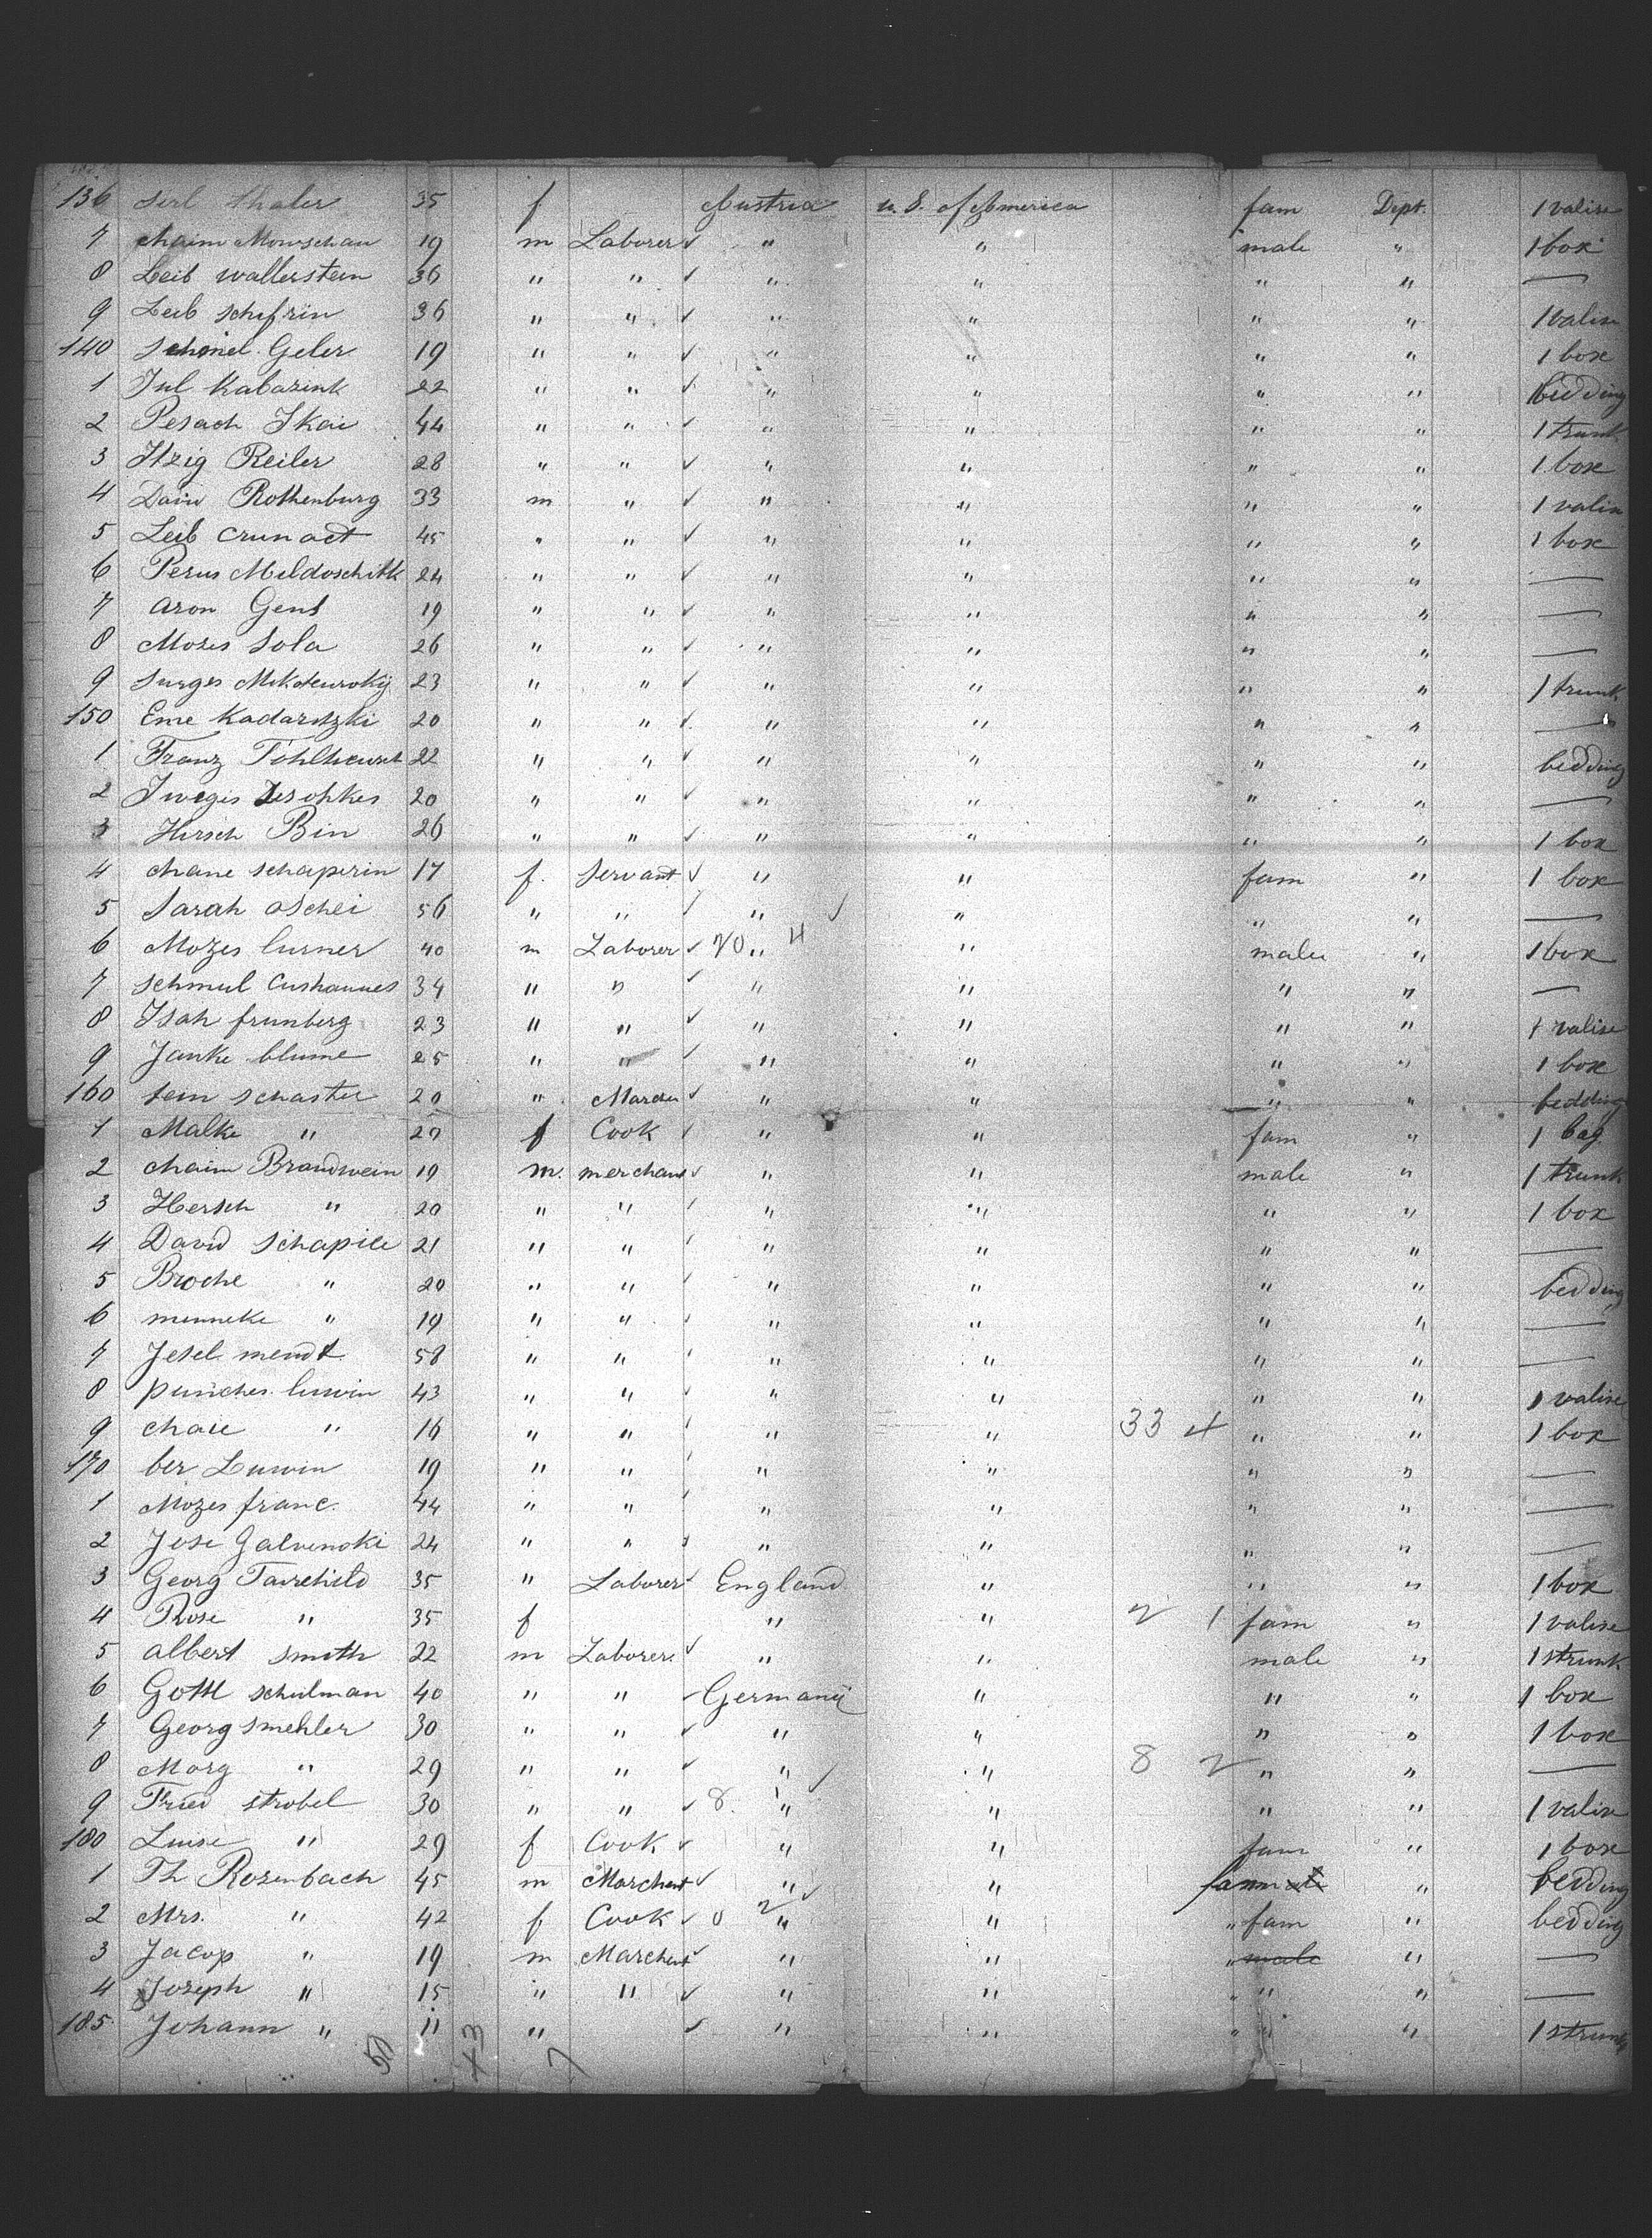 136 Serl Thaler 35 f Austria U. S. of America fam Dept. 1 valise
7 Chaim Mowschau 19 m Laborer " " male " 1 box
8 Leib Wallerstein 36 " " " " " " —
9 Leib Schifrin 36 " " " " " " 1 valise
140 Schmel Geler 19 " " " " " " 1 box
1 Jul Kabarink 22 " " " " " " bedding
2 Pesach Skai 44 " " " " " " 1 trunk
3 Itzig Reiler 28 " " " " " " 1 box
4 David Rothenburg 33 m " " " " " 1 valise
5 Leib Crunact 45 " " " " " " 1 box
6 Perus Meldoschitk 24 " " " " " " —
7 Aron Gens 19 " " " " " " —
8 Mozes Sola 26 " " " " " " —
9 Surges 23 " " " " " " 1 trunk
150 Eme Kadaritzki 20 " " " " " " —
1 Franz 22 " " " " " " bedding
2 20 " " " " " " —
3 Hirsch Bin 26 " " " " " " 1 box
4 Chane Schapirin 17 f. Servant " " fam " 1 box
5 Sarah Aschei 56 " " " " " " —
6 Mozes Lurner 40 m Laborer 20 " 4 " male " 1 box
7 Schmul Cushannes 34 " " " " " " —
8 Isah frunberg 23 " " " " " " 1 valise
9 Janke blume 25 " " " " " " 1 box
160 Sem Schaster 20 " " " " " bedding
1 Malke " 20 f Cook " " fam " 1 bag
2 Chaim Brandwein 19 m. merchant " " male " 1 trunk
3 Hersch " 20 " " " " " " 1 box
4 David Schapile 21 " " " " " " —
5 Broche " 20 " " " " " " bedding
6 menneke " 19 " " " " " " —
7 Jesel mendt 58 " " " " " " —
8 punches luwin 43 " " " " " " 1 valise
9 Chaie " 16 " " " " 33 4 " " 1 box
170 ber Luwin 19 " " " " " " —
1 Mozes franc. 44 " " " " " " —
2 Jose Galvenski 24 " " " " " " —
3 Georg Fairchild 35 " Laborer England " " " 1 box
4 Rose " 35 f " " 2 1 fam " 1 valise
5 Albert Smith 22 m Laborer " " male " 1 trunk
6 Gottl Schulman 40 " " Germany " " " 1 box
7 Georg Smehler 30 " " " " " " 1 box
8 Marg " 29 " " " " 8 2 " " —
9 Fried Strobel 30 " " 8 " " " " 1 valise
180 Luise " 29 f Cook " " fam " 1 box
1 Th Rosenbach 45 m Marchent " " " bedding
2 Mrs. " 42 f Cook 0 2 " " " fam " bedding
3 Jacop " 19 m Marchent " " " male " —
4 Joseph " 15 " " " " " " —
185 Johann " 11 " " " " " 1 trunk
50 43 7